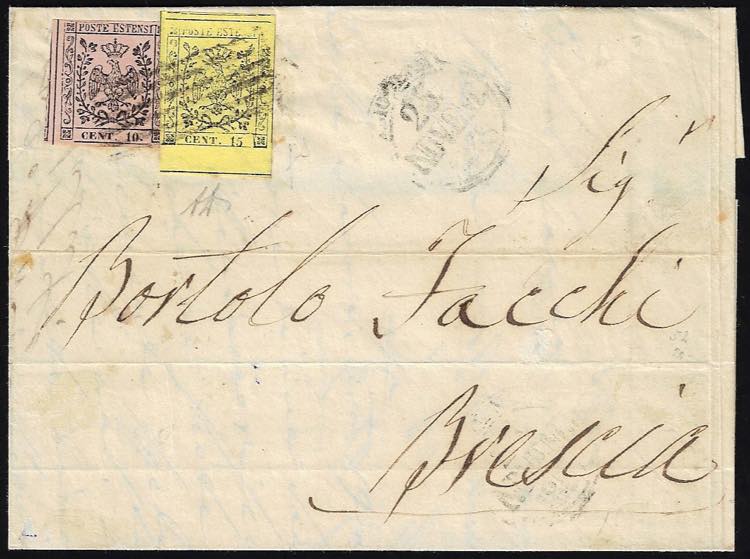 POSTE ESTENSI
CENT. 10.
POSTE ESTENSI
CENT. 15
25
NOV.
Sig.r
Bortolo Facchi
Brescia